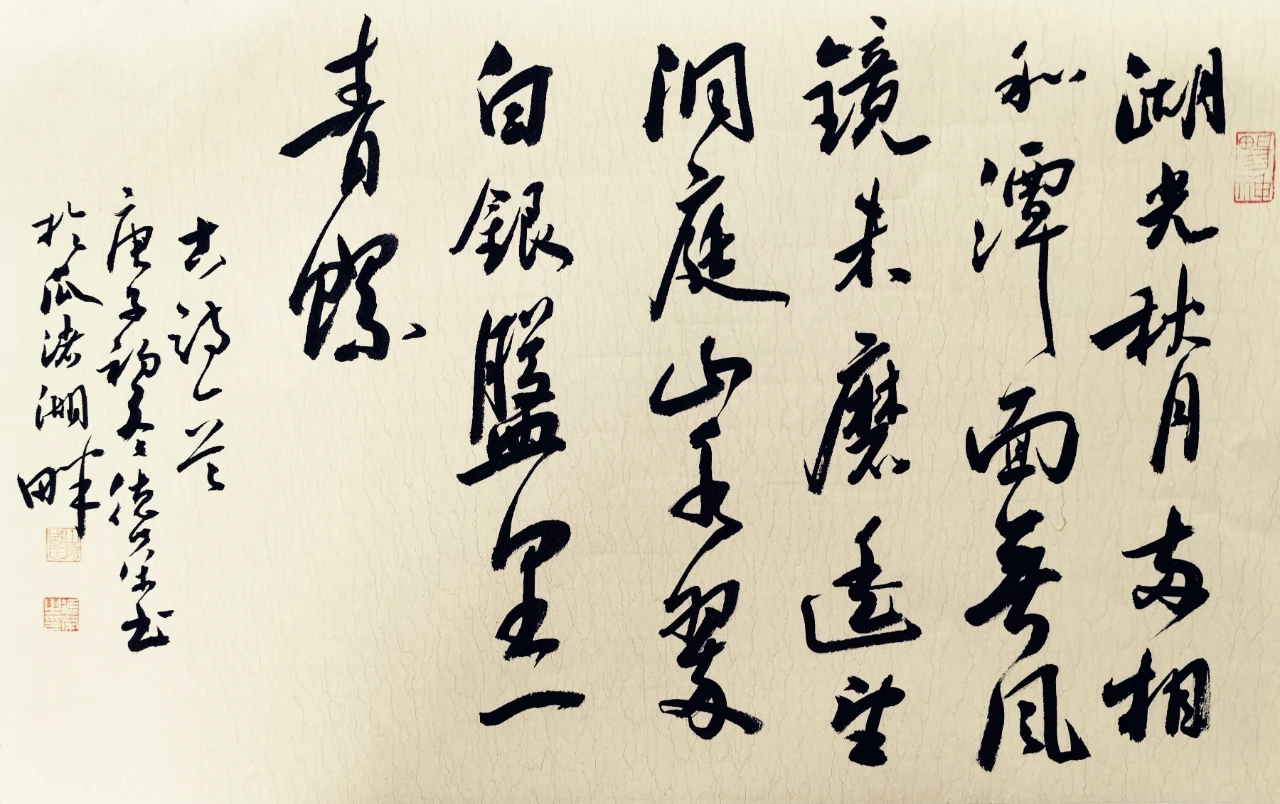 湖光秋月两相
和潭面無风
镜未磨遥望
洞庭山水翠
白银盤里一
青螺
古诗一首
庚子初冬德荣书
於瓜渚湖畔